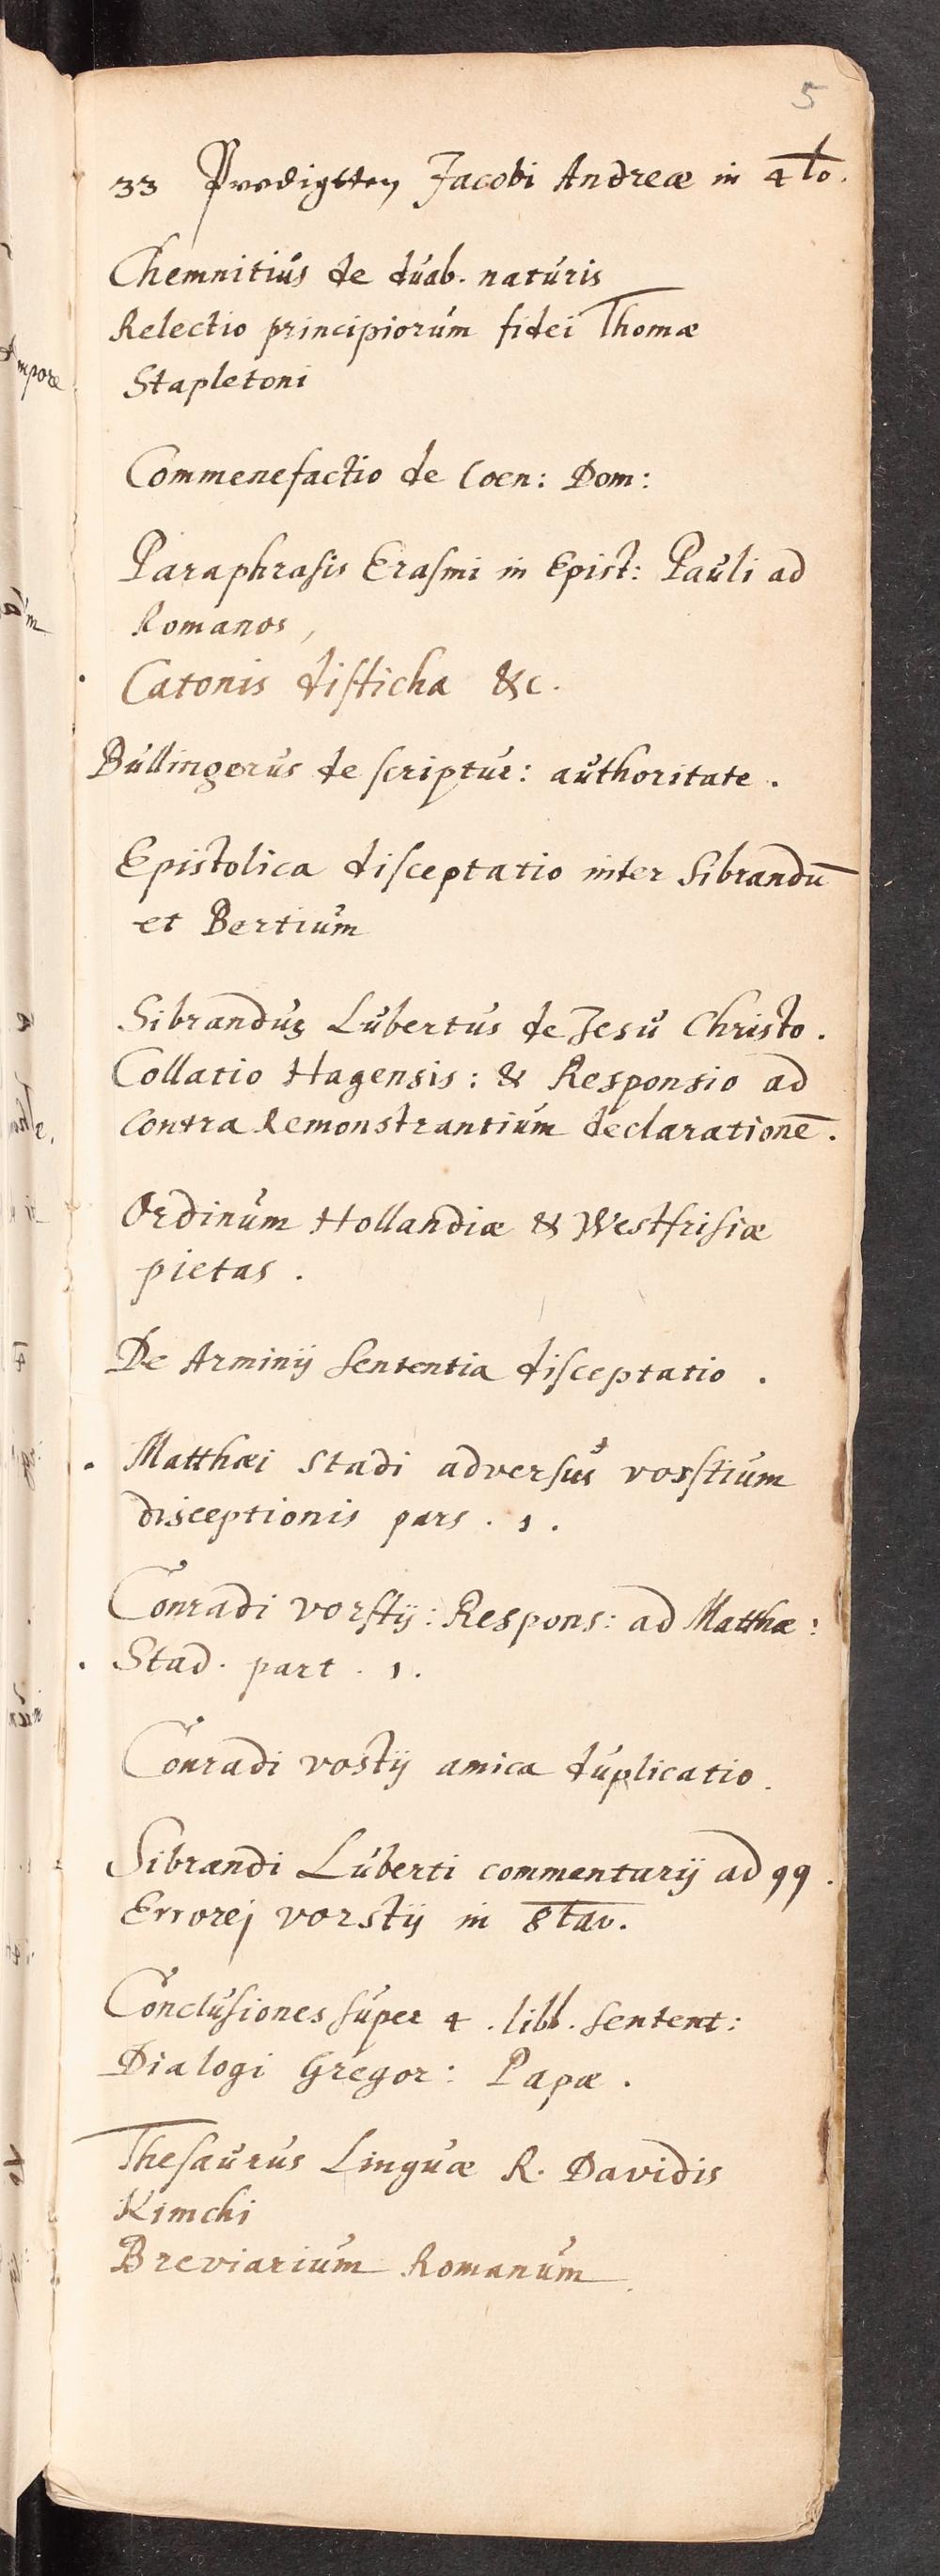 5
33 Predigtten Jacobi Andreæ in 4to.
Chemnitius de duab. naturis
Relectio principiorum fidei Thomæ
Stapletoni
Commenefactio de Coen: Dom:
Paraphrasis Erasmi in Epist: Pauli ad
Romanos,
Catonis disticha &c.
Bullingerus de scriptur: authoritate.
Epistolica disceptatio inter Sibrandū
et Bertium
Sibrandus Lubertus de Jesu Christo.
Collatio Hagensis: & Responsio ad
Contra Remonstrantium declarationē.
Ordinum Hollandiæ & Westfrisiæ
pietas.
De Arminij sententia disceptatio.
Matthæi Stadi adversus vorstium
disceptionis pars. 1.
Conradi vorstij: Respons: ad Matthæ:
Stad. part. 1.
Conradi vostij amica duplicatio.
Sibrandi Luberti commentarij ad 99.
Errores vorstij in 8tav.
Conclusiones super 4. libb. sentent:
Dialogi Gregor: Papæ.
Thesaurus Linguæ R. Davidis
Kimchi
Breviarium Romanum